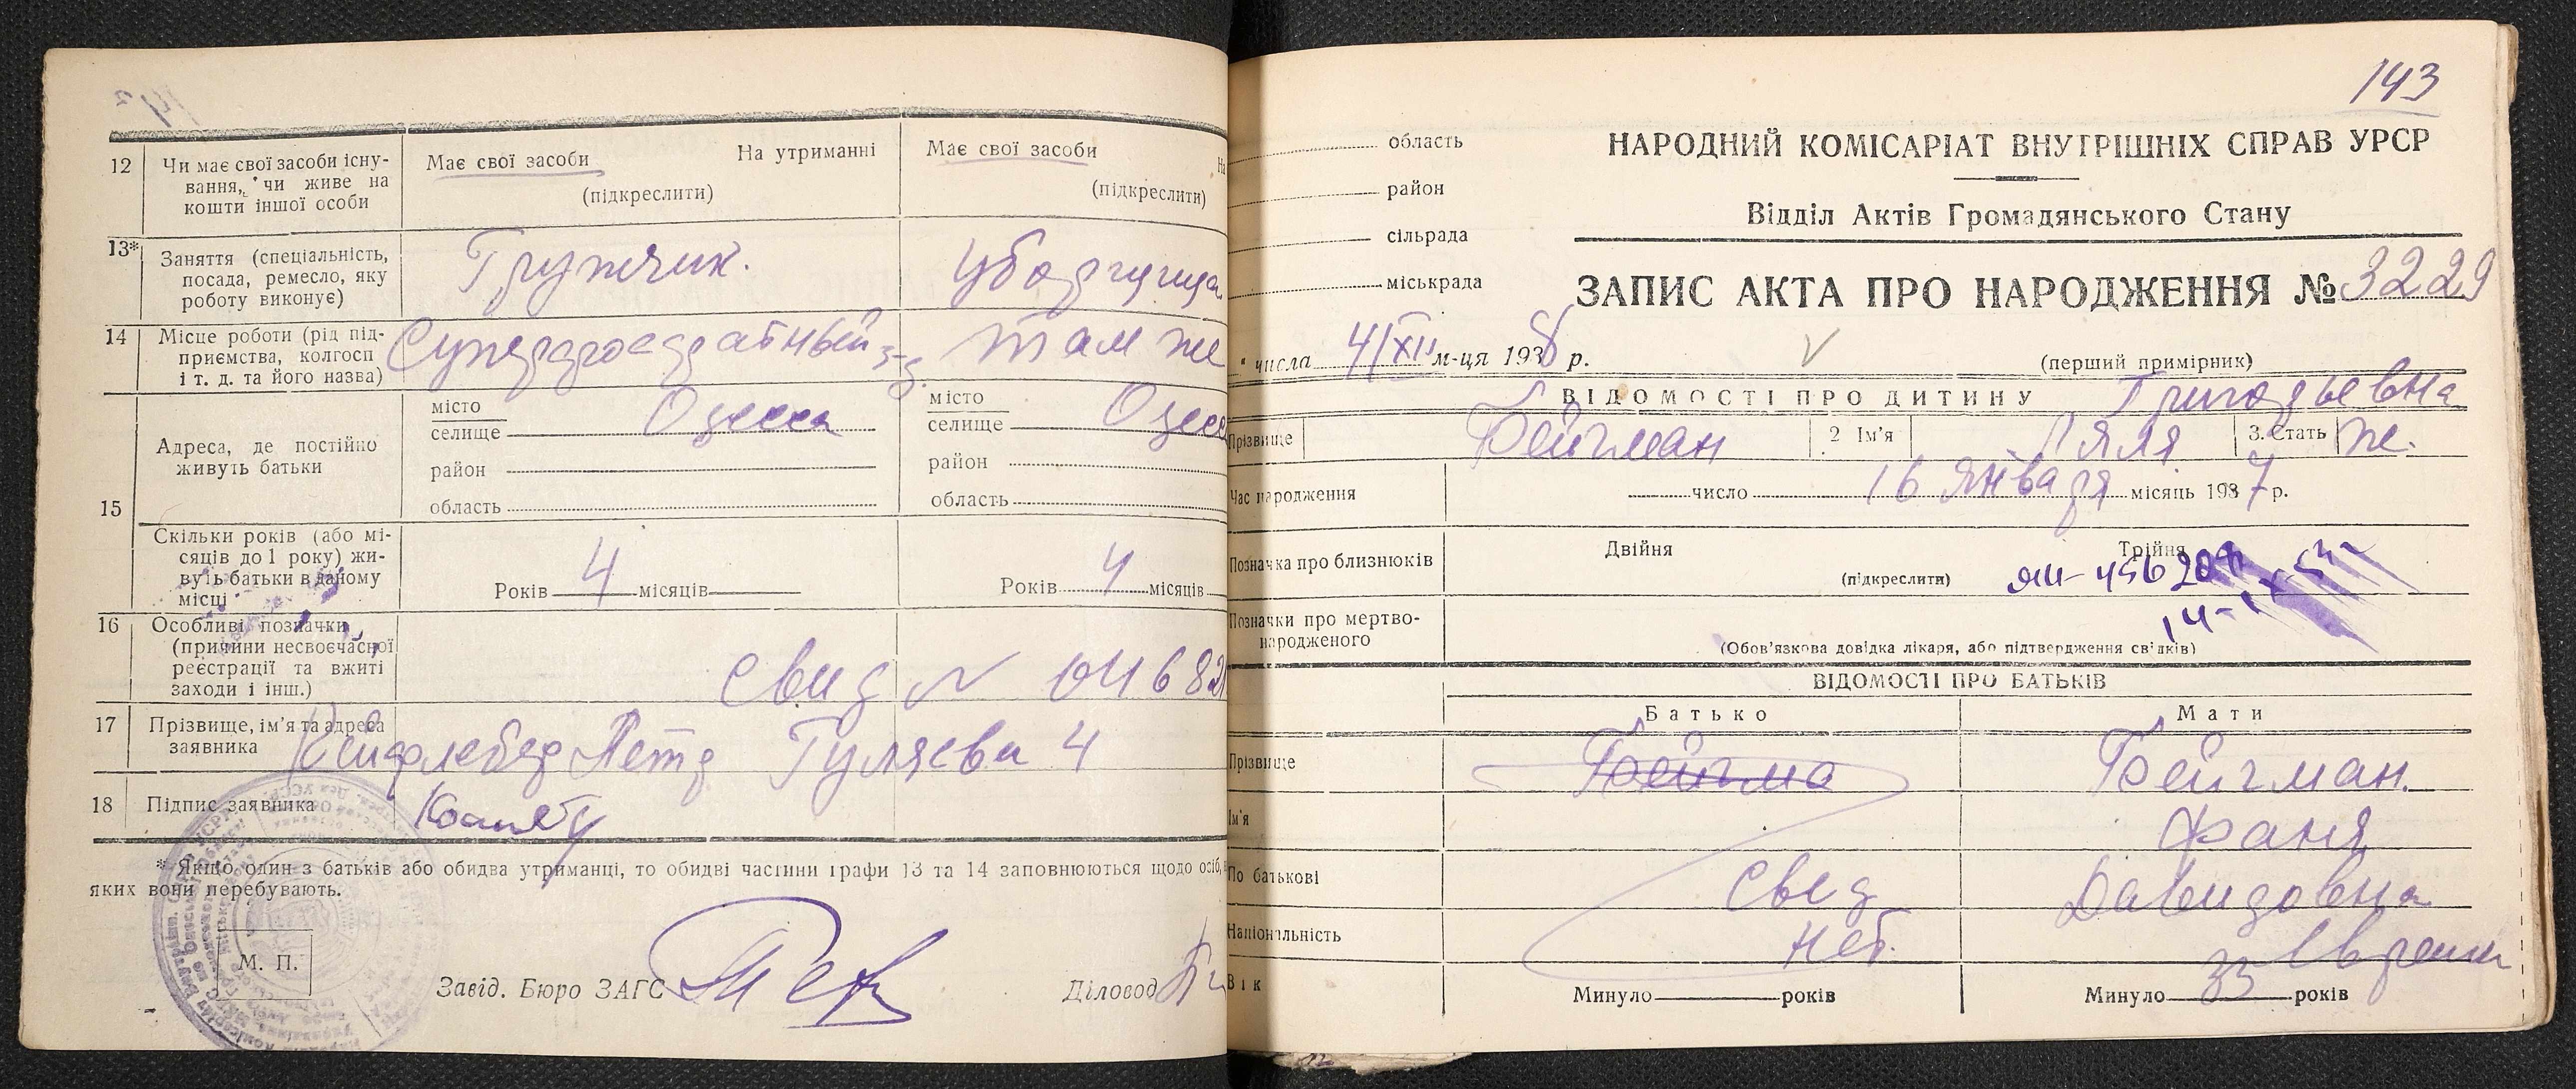 12 Чи має свої засоби існу-
вання, чи живе на
кошти іншої особи
Має свої засоби На утриманні
(підкреслити)
Має свої засоби На
(підкреслити)
13* Заняття (спеціальність,
посада, ремесло, яку
роботу виконує)
Грузчик.
Уборщица
14 Місце роботи (рід під-
приємства, колгосп
і т. д. та його назва)
Суперфосфатный з-д.
там же
15 Адреса, де постійно
живуть батьки
місто
селище Одесса
район
область
місто
селище Одесс
район
область
Скільки років (або мі-
сяців до 1 року) жи-
вуть батьки в даному
місці
Років 4 місяців
Років 4 місяців
16 Особливі позначки
(причини несвоєчасної
реєстрації та вжиті
заходи і інш.)
Свид N
17 Прізвище, ім'я та адреса
заявника
Петр Гуляева 4
18 Підпис заявника
* Якщо один з батьків або обидва утриманці, то обидві частини графи 13 та 14 заповнюються щодо осіб,
яких вони перебувають.
М. П.
Завід. Бюро ЗАГС
Діловод
143
область
район
сільрада
міськрада
НАРОДНИЙ КОМІСАРІАТ ВНУТРІШНІХ СПРАВ УРСР
Відділ Актів Громадянського Стану
ЗАПИС АКТА ПРО НАРОДЖЕННЯ № 3229
" числа 4/XII м-ця 1938 р.
V
(перший примірник)
ВІДОМОСТІ ПРО ДИТИНУ
Григорьевна
Прізвище Бейгман 2 Ім'я Ляля 3. Стать ж.
Час народження число 16 января місяць 1937 р.
Позначка про близнюків Двійня Трійня
(підкреслити)
ЯИ-456204
Позначки про мертво-
народженого
(Обов'язкова довідка лікаря, або підтвердження свідків)
ВІДОМОСТІ ПРО БАТЬКІВ
Батько Мати
Прізвище Бейгма Бейгман.
Ім'я Фаня
По батькові Свед Давидовна
Національність нет. Еврейка
Вік Минуло років Минуло 33 років